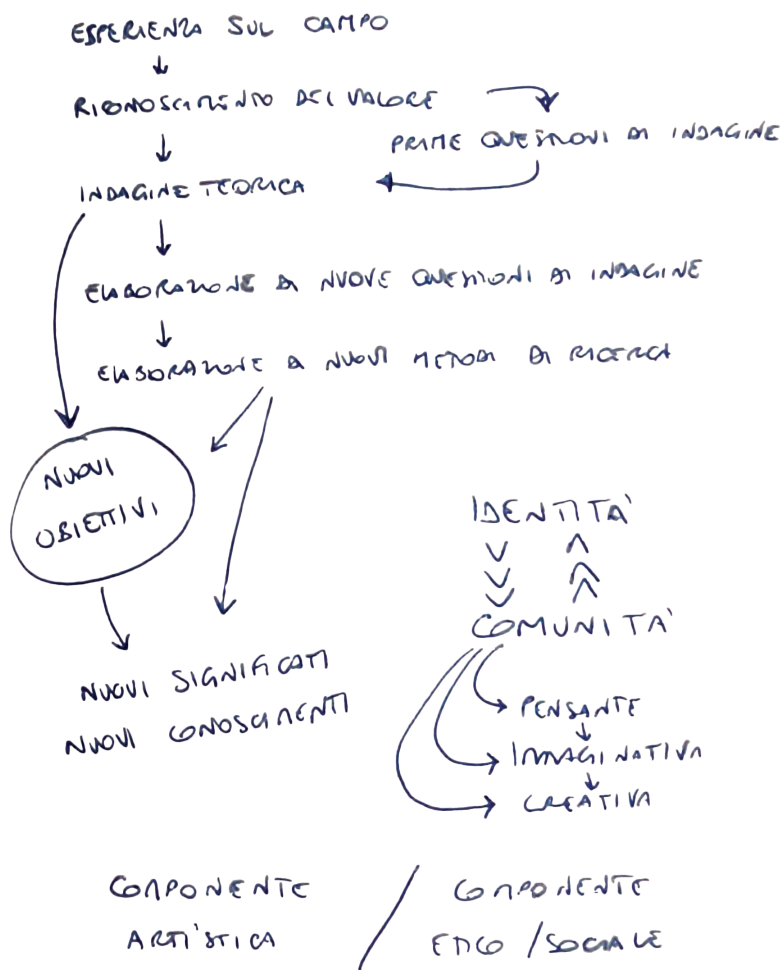 ESPERIENZA SUL CAMPO
RICONOSCIMENTO DEL VALORE
PRIME QUESTIONI DI INDAGINE
INDAGINE TEORICA
ELABORAZIONE DI NUOVE QUESTIONI DI INDAGINE
ELABORAZIONE DI NUOVI METODI DI RICERCA
NUOVI
OBIETTIVI
IDENTITÀ
COMUNITÀ
NUOVI SIGNIFICATI
NUOVI CONOSCIMENTI
PENSANTE
IMMAGINATIVA
CREATIVA
COMPONENTE
ARTISTICA
/
COMPONENTE
ETICO / SOCIALE